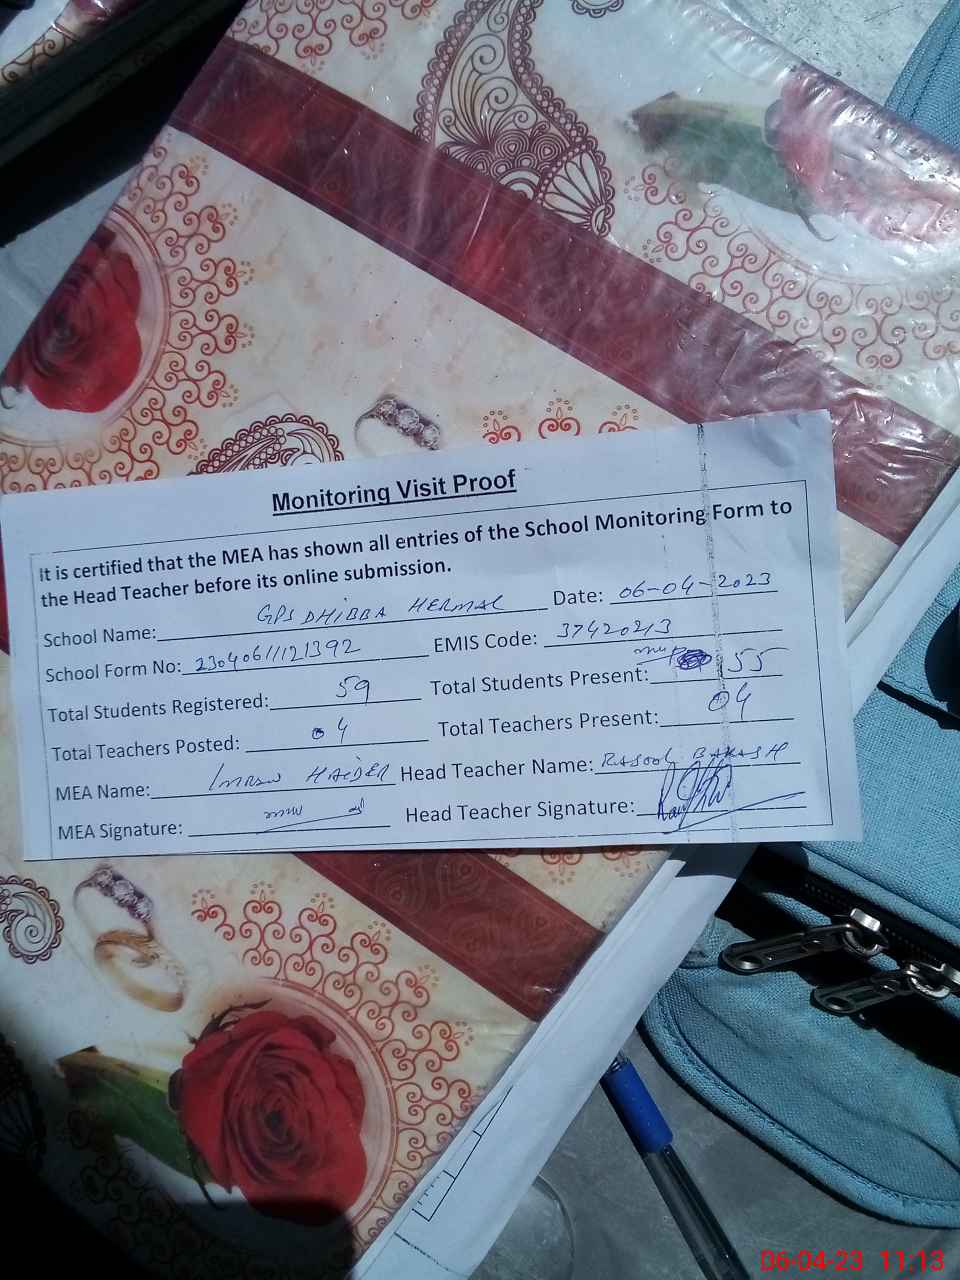 Monitoring Visit Proof
It is certified that the MEA has shown all entries of the School Monitoring Form to
the Head Teacher before its online submission.
School Name: GPS DHIBBA HERMAL Date: 06-04-2023
School Form No: 23040611121392 EMIS Code: 37420213
Total Students Registered: 59 Total Students Present: 55
Total Teachers Posted: 04 Total Teachers Present: 04
MEA Name: IMRAN HAIDER Head Teacher Name: RASOOL BAKASH
MEA Signature: Head Teacher Signature:
06-04-23 11:13